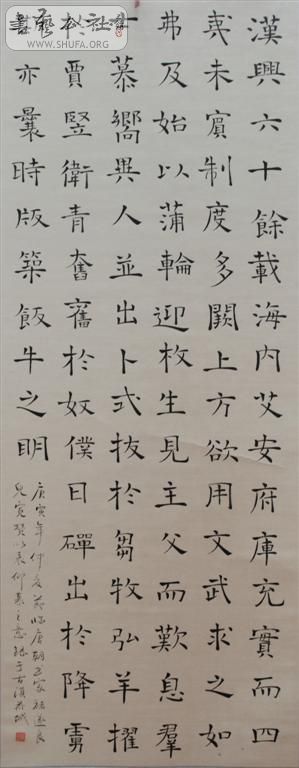 漢興六十餘載海内艾安府庫充實而四
夷未賓制度多闕上方欲用文武求之如
弗及始以蒲輪迎枚生見主父而歎息羣
士慕嚮異人並出卜式拔於芻牧弘羊擢
於賈竪衛青奮舊於奴僕日磾出於降虜
亦曩時版築飯牛之明
庚寅年仲夏節臨唐朝家褚遂良
兒寬贊以表仰慕之意于古漢城
WWW.SHUFA.ORG